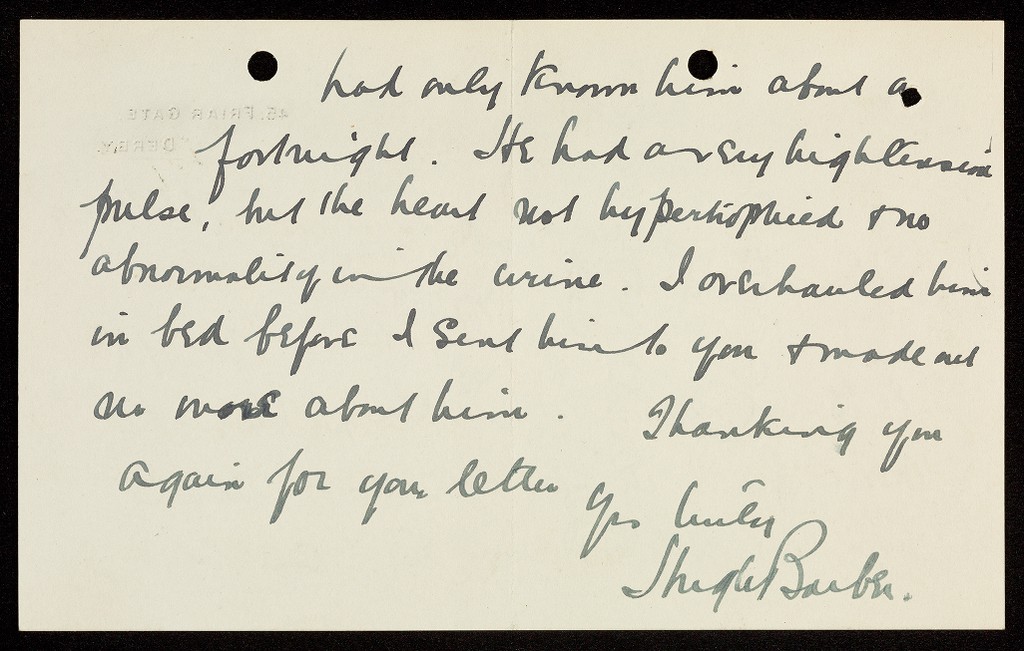 had only known him about a
45, FRIAR GATE
DERBY
fortnight. He had a very high tension
pulse, but the heart not hypertrophied & no
abnormality in the urine. I overhauled him
in bed before I sent him to you & made out
no more about him. Thanking you
again for your letter
Yrs truly
Hugh Barber.